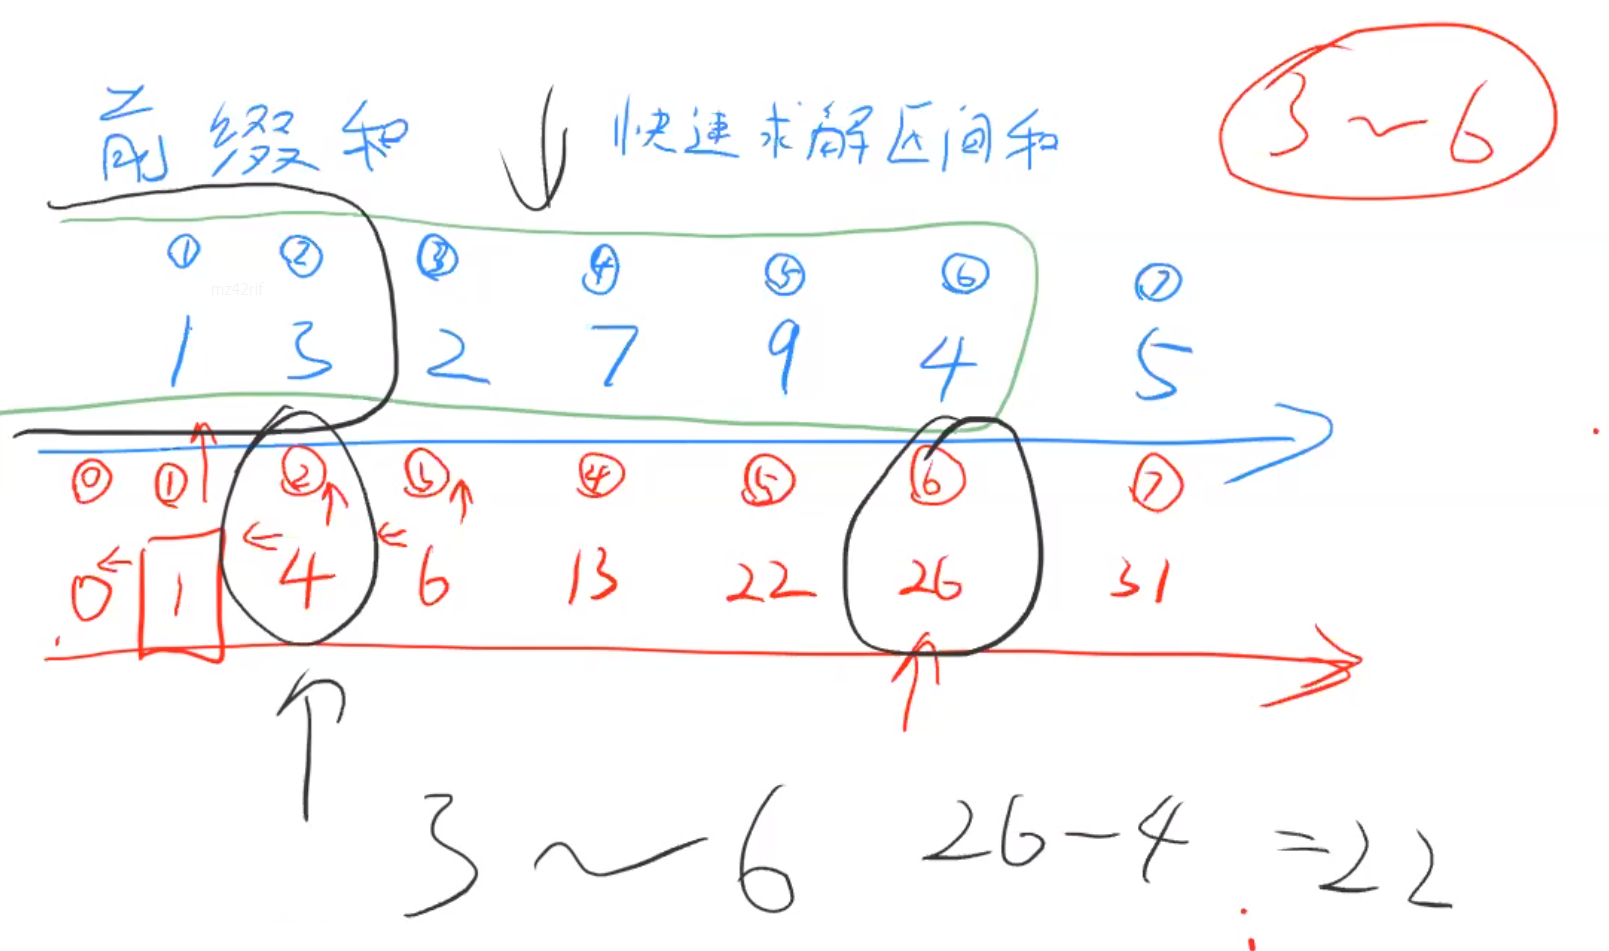 前缀和 快速求解区间和 3~6
① ② ③ ④ ⑤ ⑥ ⑦
mz42rif
1 3 2 7 9 4 5
⓪ ① ② ③ ④ ⑤ ⑥ ⑦
0 1 4 6 13 22 26 31
3~6 26-4=22